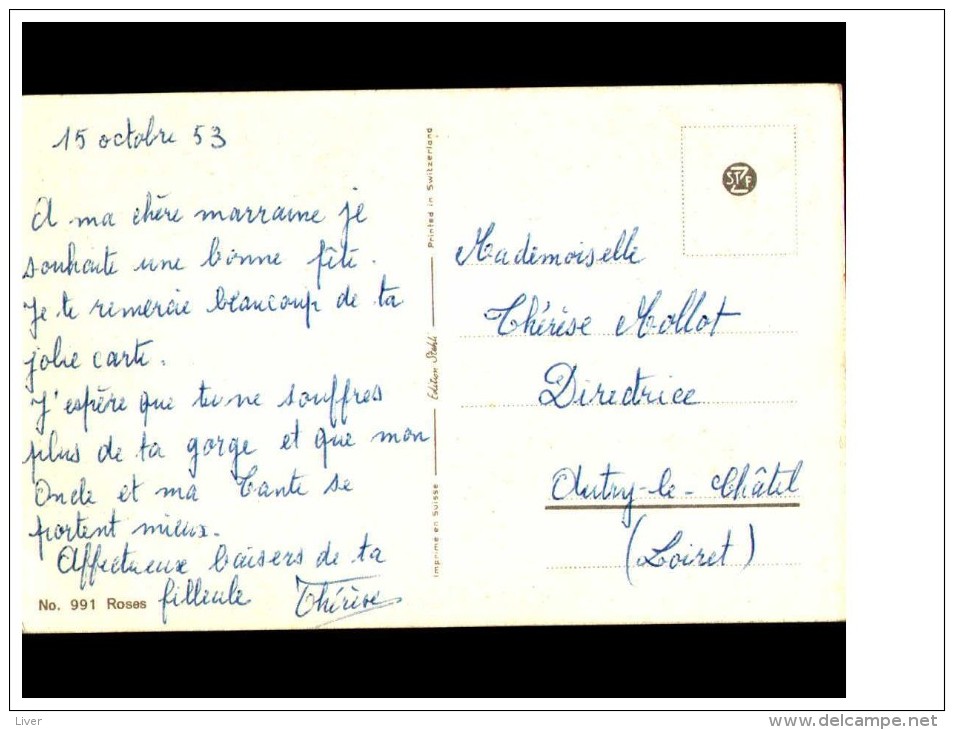 15 octobre 53
A ma chère marraine je
souhaite une bonne fête.
Je te remercie beaucoup de ta
jolie carte.
J'espère que tu ne souffres
plus de ta gorge et que mon
Oncle et ma Tante se
portent mieux.
Affectueux baisers de ta
filleule Thérèse
No. 991 Roses
Imprimé en Suisse Edition Stehli Printed in Switzerland
Mademoiselle
Thérèse Mollot
Directrice
Autry-le-Châtel
(Loiret)
Liver
www.delcampe.net